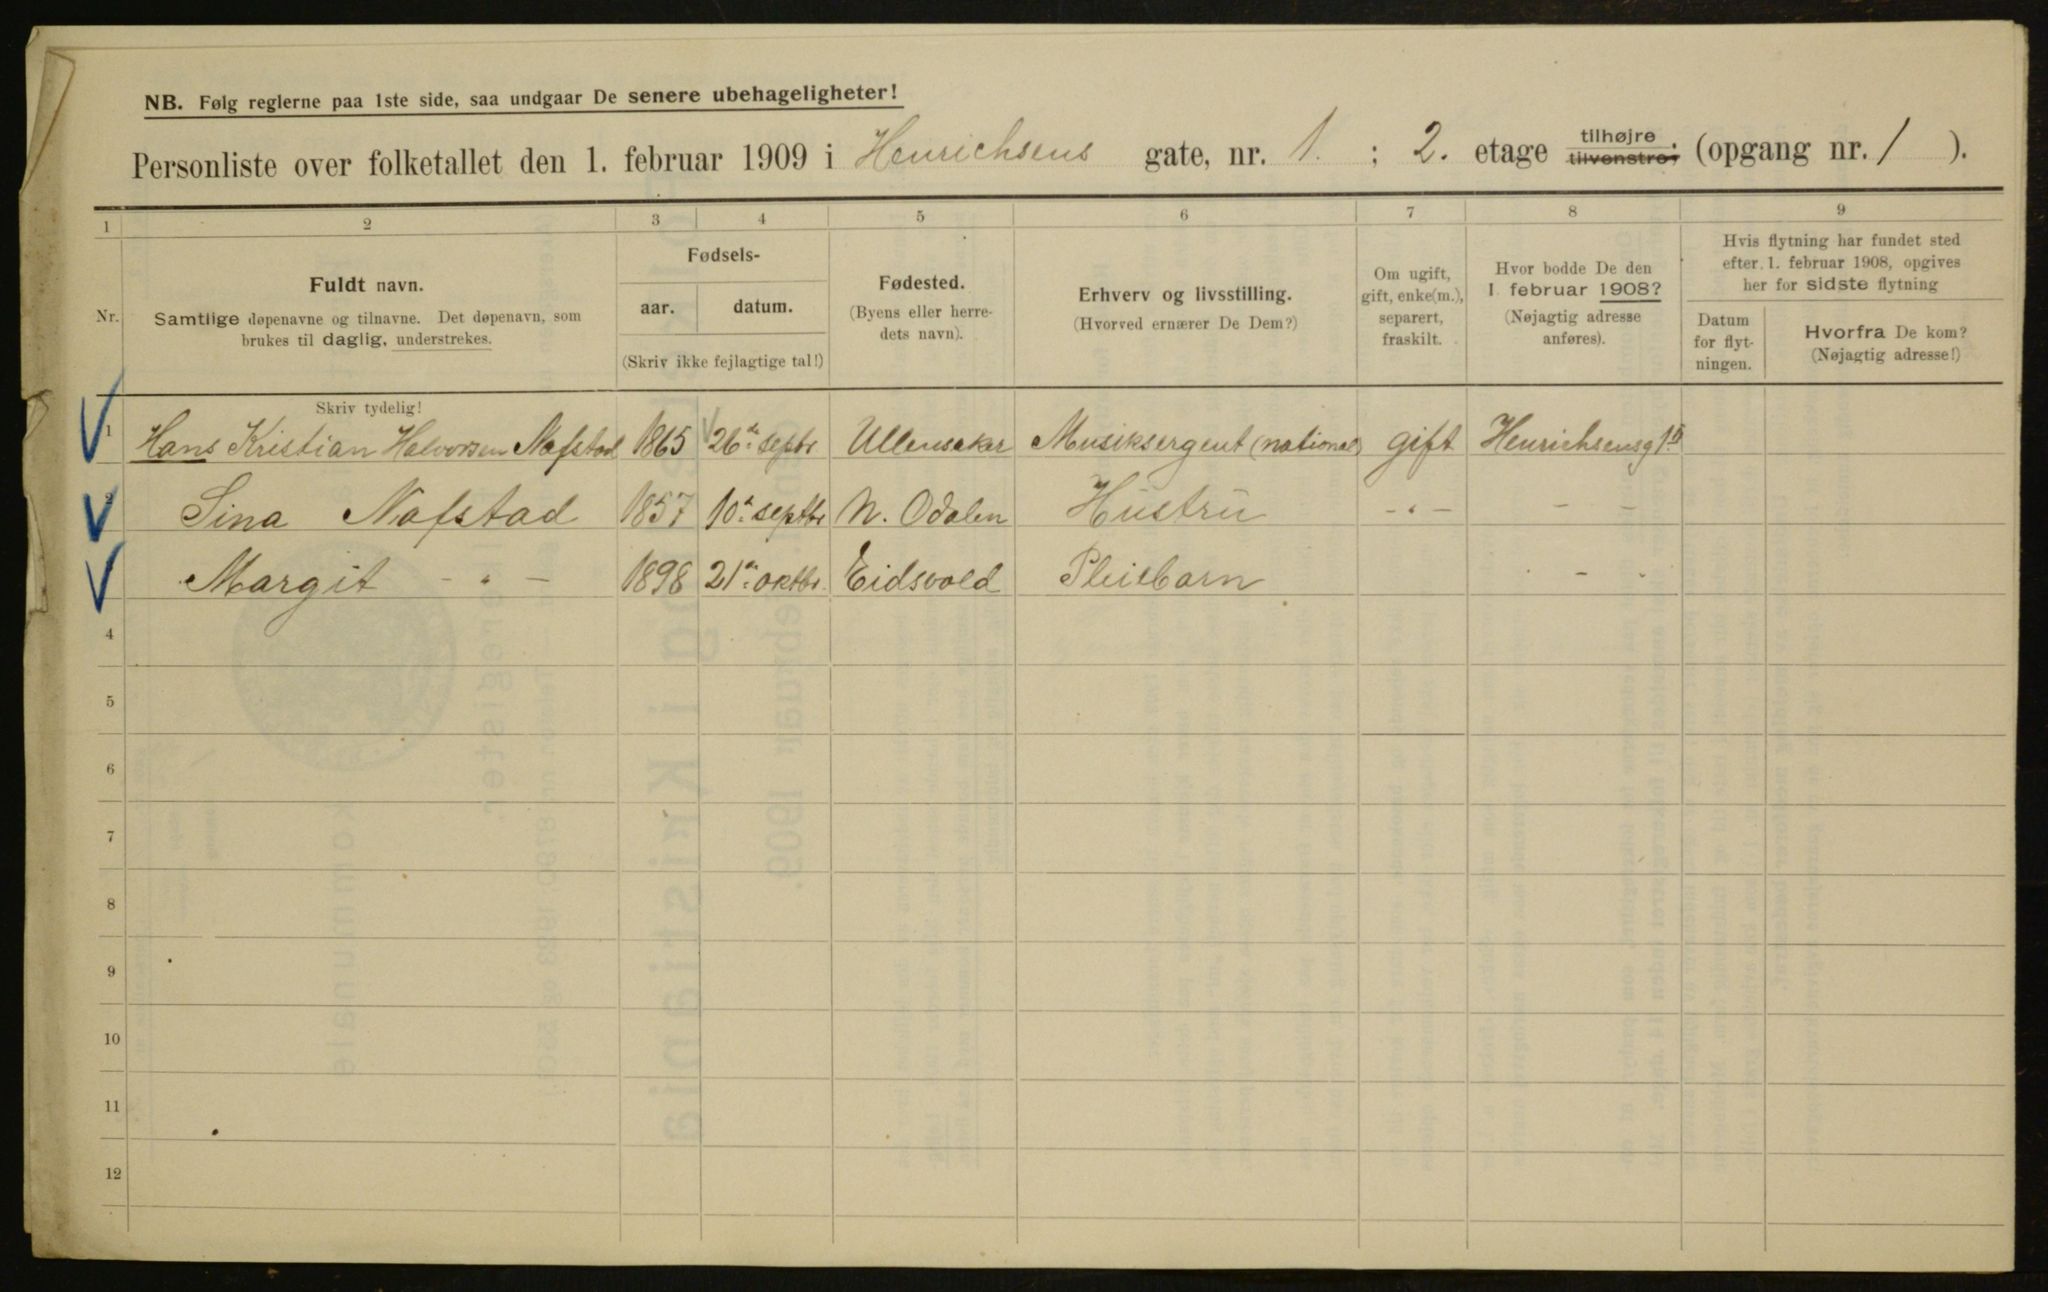 NB. Følg reglerne paa 1ste side, saa undgaar De senere ubehageligheter!
Personliste over folketallet den 1. februar 1909 i Henrichsens gate, nr. 1. ; 2. etage tilhøjre. tilvenstre, (opgang nr. 1 ).
1 2 3 4 5 6 7 8 9
Nr.
Fuldt navn.
Samtlige døpenavne og tilnavne. Det døpenavn, som
brukes til daglig, understrekes.
Fødsels-
aar. datum.
(Skriv ikke fejlagtige tal!)
Fødested.
(Byens eller herre-
dets navn).
Erhverv og livsstilling.
(Hvorved ernærer De Dem?)
Om ugift,
gift, enke(m.),
separert,
fraskilt.
Hvor bodde De den
1. februar 1908?
(Nøjagtig adresse
anføres).
Hvis flytning har fundet sted
efter 1. februar 1908, opgives
her for sidste flytning
Datum
for flyt-
ningen.
Hvorfra De kom?
(Nøjagtig adresse!)
Skriv tydelig!
1 Hans Kristian Halvorsen Nafstad 1865 26de septr Ullensaker Musiksergent (national) gift Henrichsensg 1
2 Sina Nafstad 1857 10de septbr N. Odalen Hustru - " - - -
Margit - " - 1898 21de oktbr. Eidsvold Pleiebarn - -
4
5
6
7
8
9
10
11
12